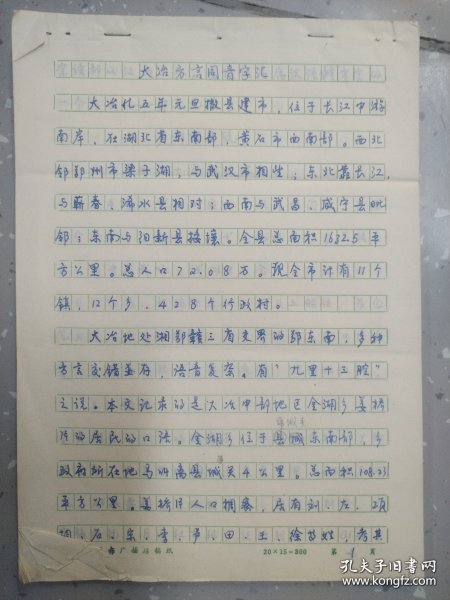 大冶方言同音字汇
大冶九五年元旦撤县建市，位于长江中游
南岸，在湖北省东南部，黄石市西南部。西北
邻鄂州市梁子湖，与武汉市相望；东北靠长江，
与蕲春、浠水县相对；西南与武昌、咸宁县毗
邻；东南与阳新县接壤。全县总面积1632.5平
方公里。总人口72.08万。现全市计有11个
镇，12个乡，428个行政村。
大冶地处湘鄂赣三省交界的鄂东南，多种
方言交错并存，语音复杂。有“九里十三腔”
之说。本文记录的是大冶中部地区金湖乡姜桥
片的居民的口语。金湖乡位于县城东南部，乡
政府所在地马叫离县城关4公里。总面积108.23
平方公里。姜桥片人口稠密，居有刘、左、项
胡、石、朱、李、尹、田、王、徐等姓，考其
20×15=300 第1页
孔夫子旧书网